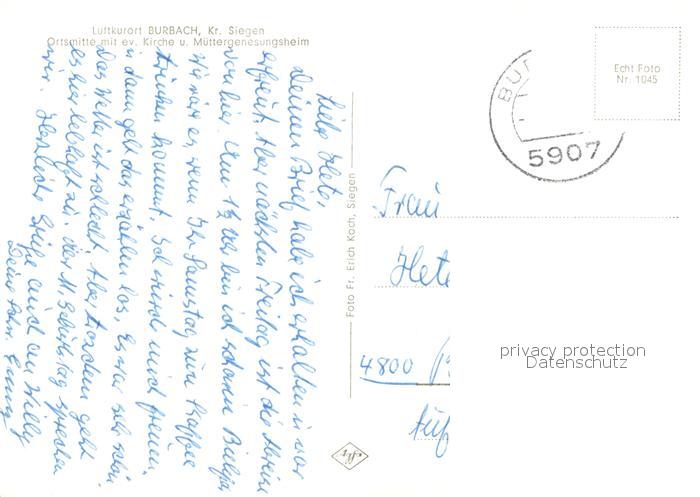 Luftkurort BURBACH, Kr. Siegen
Ortsmitte mit ev. Kirche u. Müttergenesungsheim
Echt Foto
Nr. 1045
BUR
5907
Foto Fr. Erich Koch, Siegen
Liebe Hete,
Deinen Brief habe ich erhalten u. war
erfreut. Aber nächsten Freitag ist die
von hier. Um 1½ Uhr bin ich schon in
Wie wär es, wenn Ihr Samstag zum Kaffee
trinken kommt. Ich würde mich freuen.
u. dann geht das erzählen los, Es war sehr schön
Das Wetter ist schlecht. Aber trotzdem geht
es hier lebhaft zu.
wir. Herzliche Grüße auch an Willy
Deine
Frau
Hete
4800
privacy protection
Datenschutz